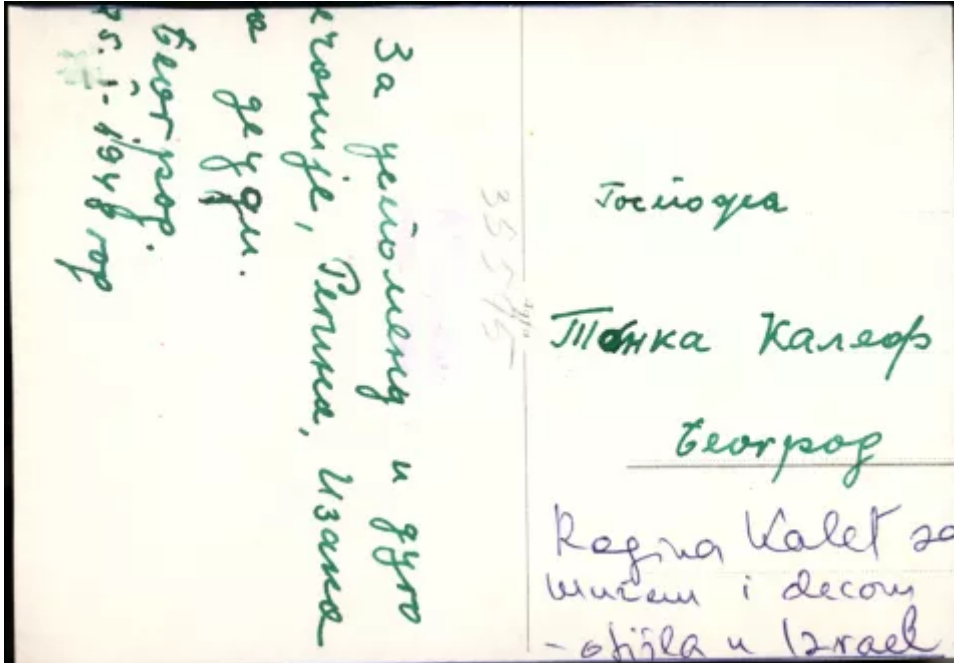 За успомену и дуго
сећање, Регина, Исака
и деуди.
Београд.
25. 1- 1948 год
35545
Госпођа
Тонка Калеф
Београд
Regina Kalef sa
mužem i decom
- otišla u Izrael